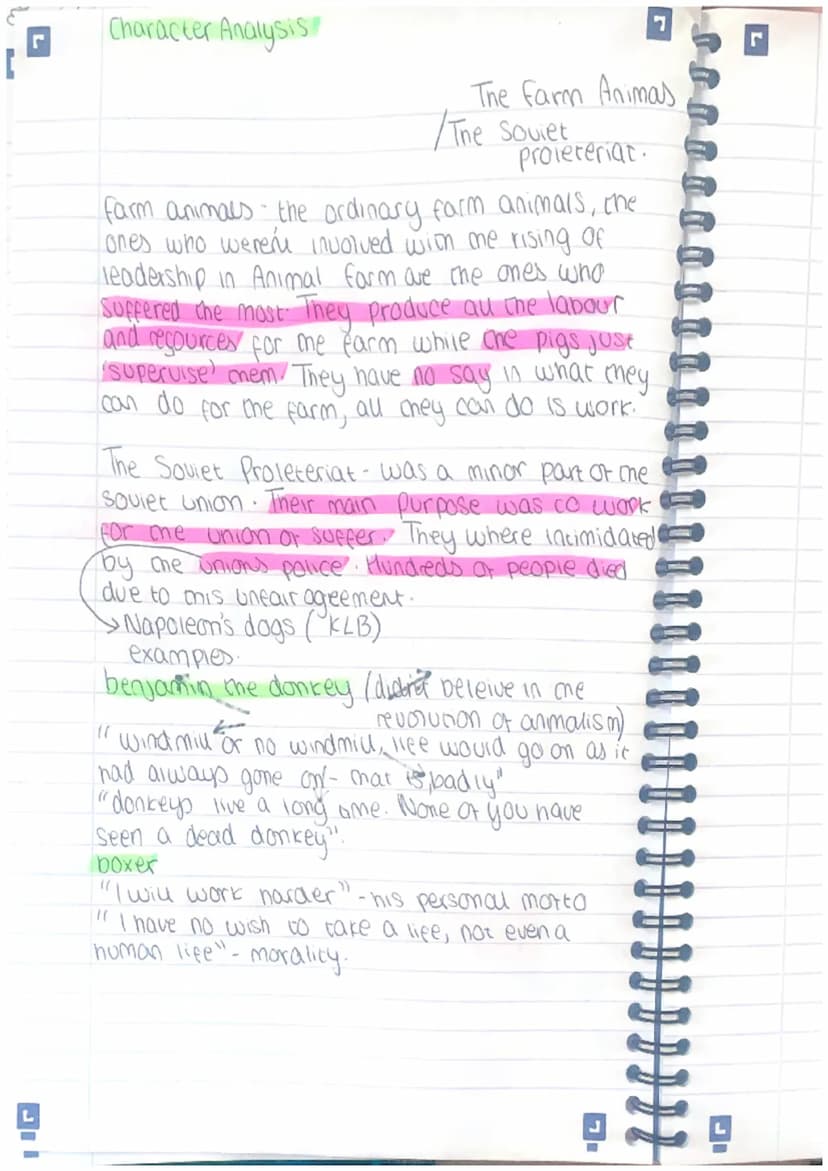 Character Analysis
The Farm Animas
/The Soviet
proleteriat.
farm animals - the ordinary farm animals, the
ones who weren't involved with the rising of
leadership in Animal farm are the ones who
suffered the most. They produce all the labour
and resources for the farm while the pigs just
'supervise' them. They have no say in what they
can do for the farm, all they can do is work.
The Soviet Proleteriat - was a minor part of the
soviet union. Their main purpose was to work
for the union or suffer. They where intimidated
by the unions police. Hundreds of people died
due to this unfair agreement.
→ Napoleon's dogs (KLB)
examples.
benjamin the donkey (didn't beleive in the
revolution of animalism)
"windmill or no windmill, life would go on as it
had always gone on - that is, badly"
"donkeys live a long time. None of you have
seen a dead donkey".
boxer
"I will work harder" - his personal motto
"I have no wish to take a life, not even a
human life" - morality.